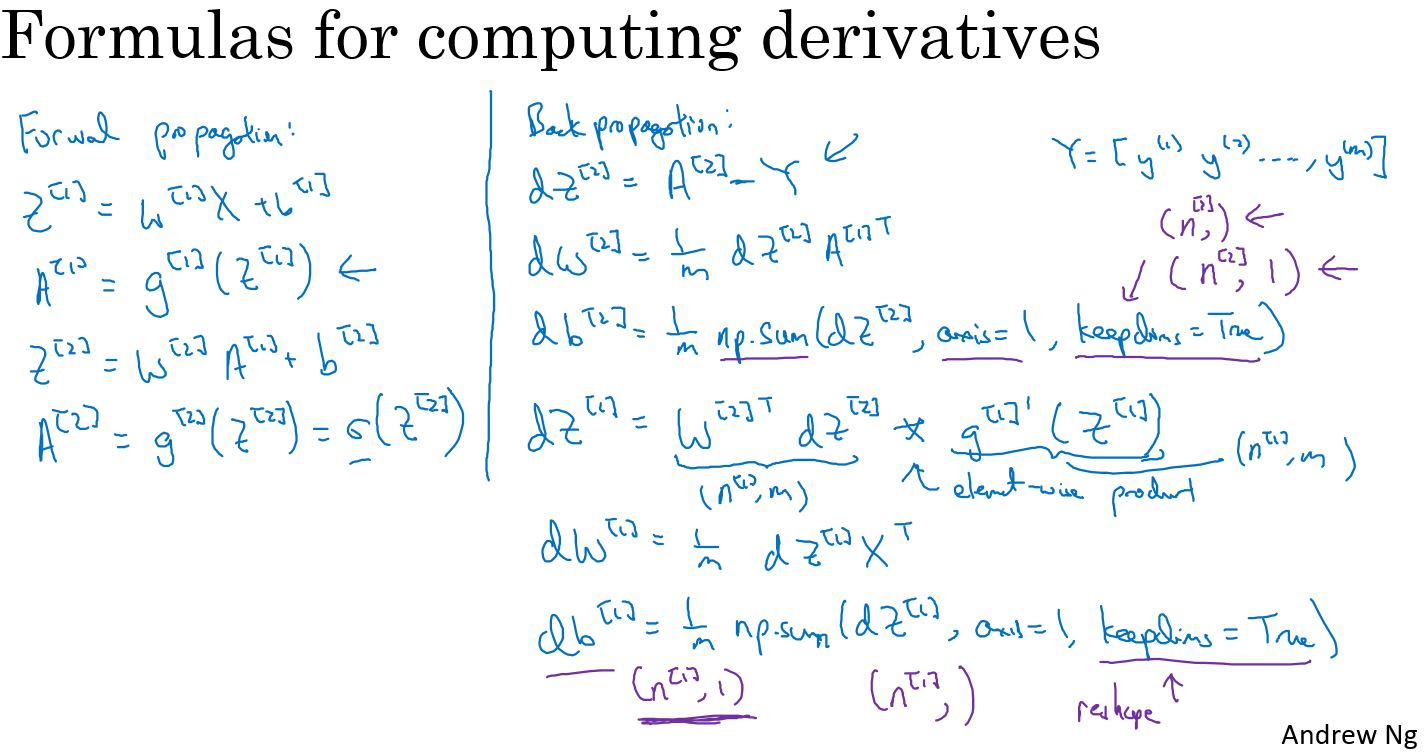 Formulas for computing derivatives
Forward propagation:
Z^[1] = W^[1] X + b^[1]
A^[1] = g^[1](Z^[1]) ←
Z^[2] = W^[2] A^[1] + b^[2]
A^[2] = g^[2](Z^[2]) = σ(Z^[2])
Back propagation:
dZ^[2] = A^[2] - Y ↙
dW^[2] = 1/m dZ^[2] A^[1]T
db^[2] = 1/m np.sum(dZ^[2], axis=1, keepdims=True)
Y = [y^(1) y^(2) ...., y^(m)]
(n^[2],) ←
↙ (n^[2], 1) ←
dZ^[1] = W^[2]T dZ^[2] * g^[1]'(Z^[1])
(n^[1], m) ↖ element-wise product (n^[1], m)
dW^[1] = 1/m dZ^[1] X^T
db^[1] = 1/m np.sum(dZ^[1], axis=1, keepdims=True)
(n^[1], 1) (n^[1],) reshape ↑
Andrew Ng